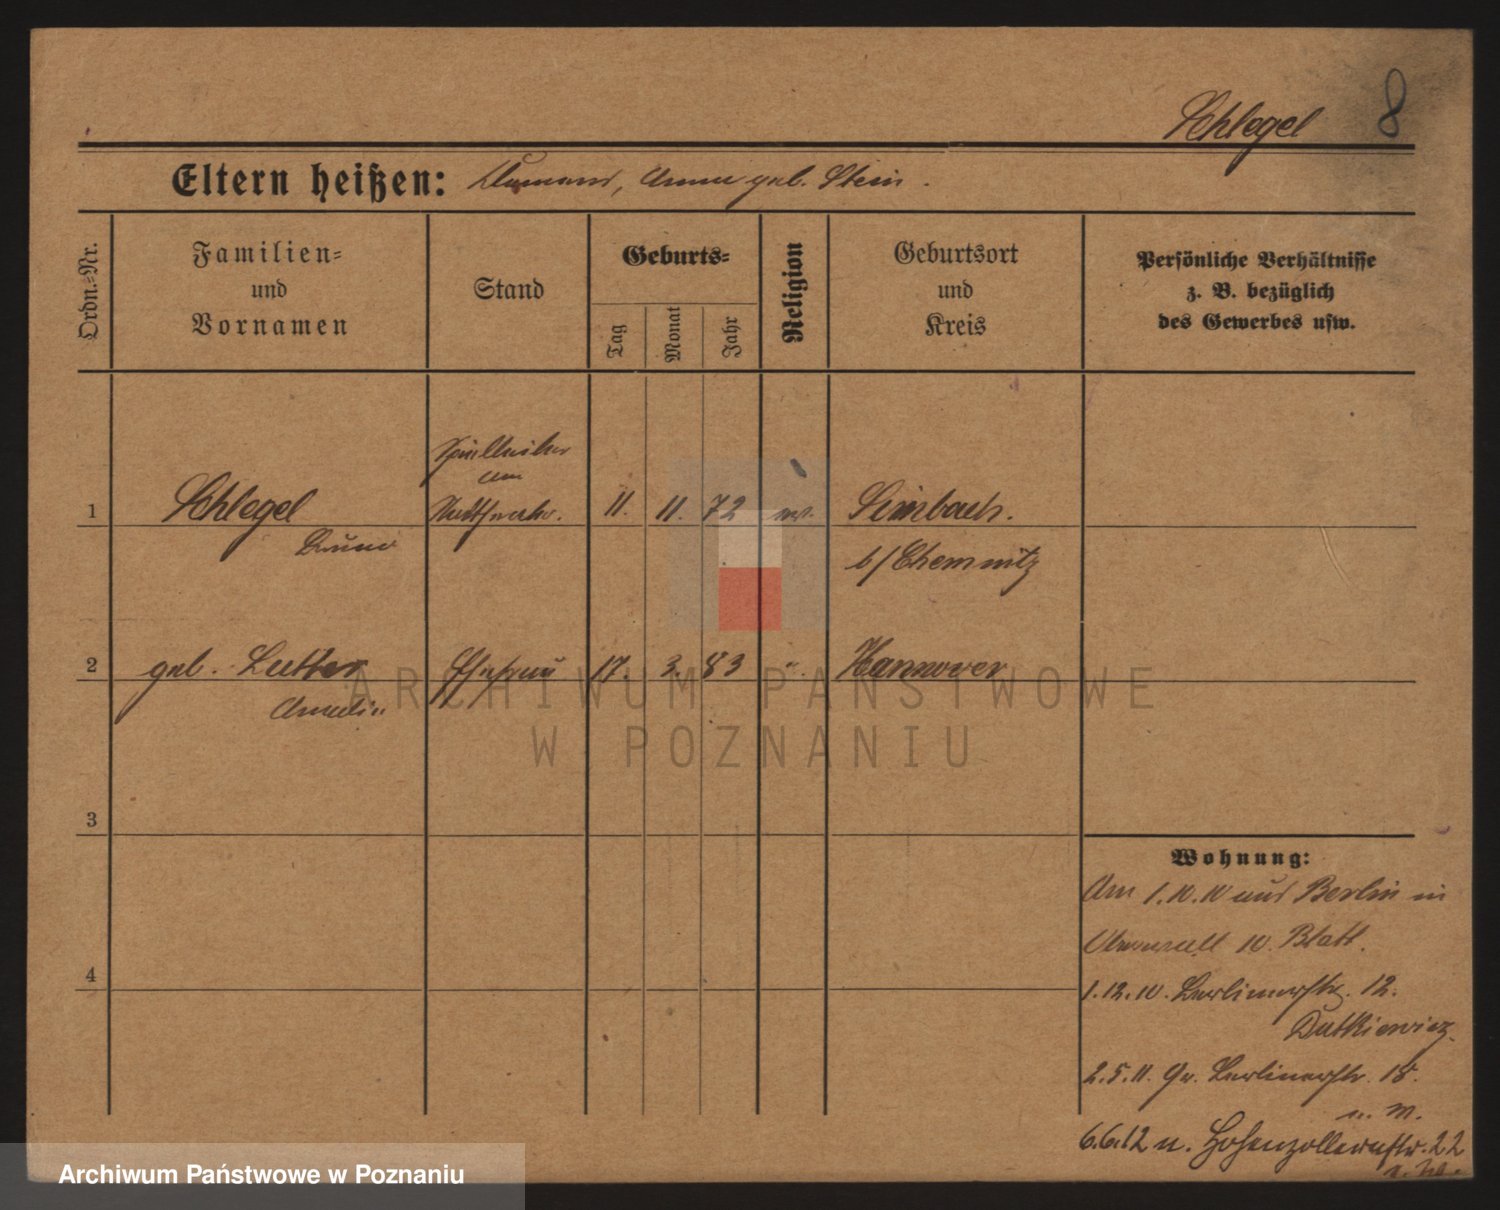 8
Schlegel
Eltern heißen: Anna geb. Stein.
Ordn.=Nr.
Familien=
und
Vornamen
Stand
Geburts=
Tag
Monat
Jahr
Religion
Geburtsort
und
Kreis
Persönliche Verhältnisse
z. B. bezüglich
des Gewerbes usw.
1 Schlegel 11. 11. 72 Limbach.
Bruno b/Chemnitz
2 geb. Lutter Ehefrau 17. 3. 83 ". Hannover
Amalie
3
4
Wohnung:
Am 1.10.10 aus Berlin in
10. Blatt.
1.12.10. Berlinerstr. 12.
Dutkiewicz.
2.5.11. Gr. Berlinerstr. 18.
a. M.
6.6.12 n. Hohenzollernstr. 22
ARCHIWUM PAŃSTWOWE
W POZNANIU
Archiwum Państwowe w Poznaniu